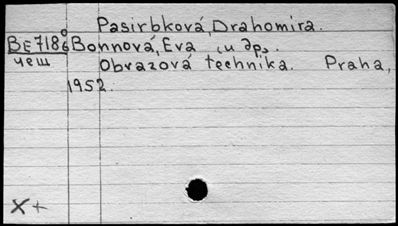 Pasirbková, Drahomira.
BE7186 Bonnová, Eva и др.
чеш Obrazová technika. Praha,
1952.
X+